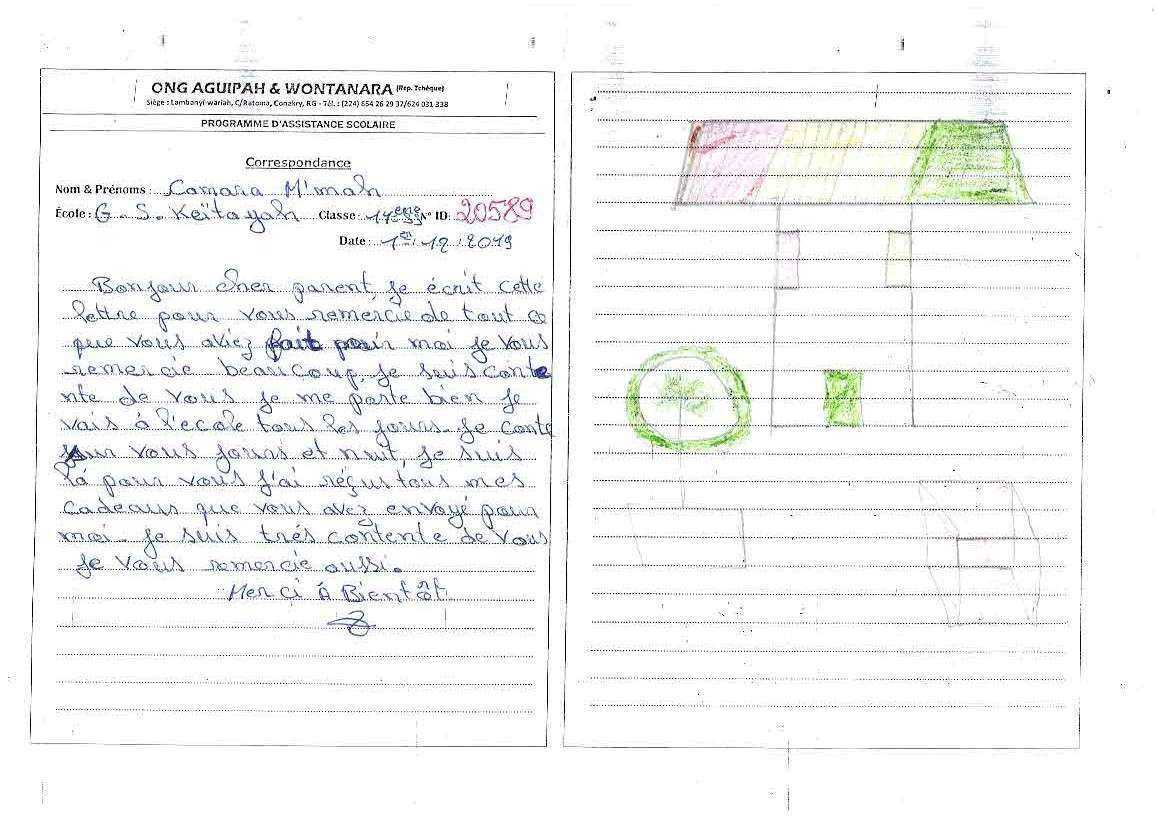 ONG AGUIPAH & WONTANARA (Rep. Tchèque)
Siège : Lambanyi-wariah, C/Ratoma, Conakry, RG - Tél. : (224) 654 26 29 37/624 031 338
PROGRAMME D'ASSISTANCE SCOLAIRE
Correspondance
Nom & Prénoms : Camara M'mah
École : G. S. Keïtayah Classe : 11ème N° ID: 20589
Date : 1er/12/2019
Bonjour cher parent, je écrit cette
lettre pour vous remercie de tout ce
que vous aviez fait pour moi je vous
remercie beaucoup, je suis conte
nte de vous je me porte bien je
vais à l'ecole tous les jours. Je conte
sur vous jours et nuit, je suis
là pour vous j'ai réçus tous mes
cadeaus que vous avez envoyé pour
moi. je suis trés contente de vous
je vous remercie aussi.
Merci à Bientôt